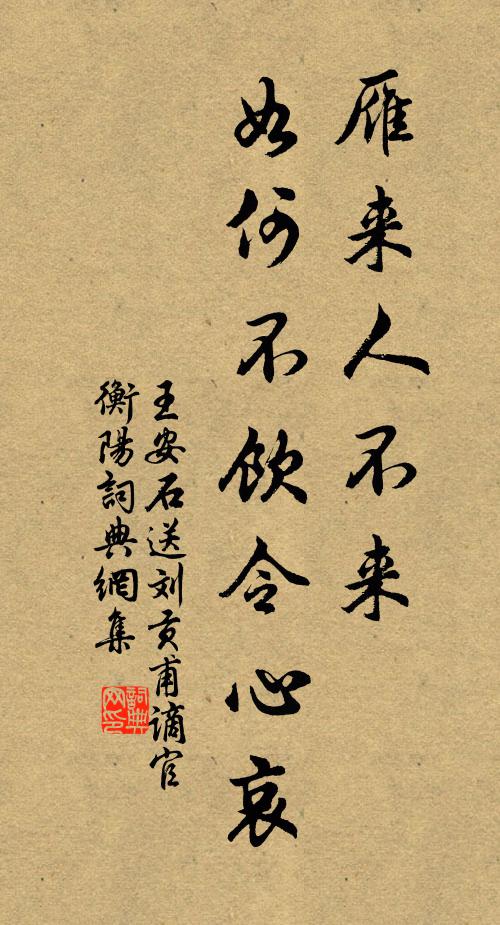 雁来人不来
如何不飲令心哀
王安石送刘貢甫謫官
衡陽詞典網集
詞典网印